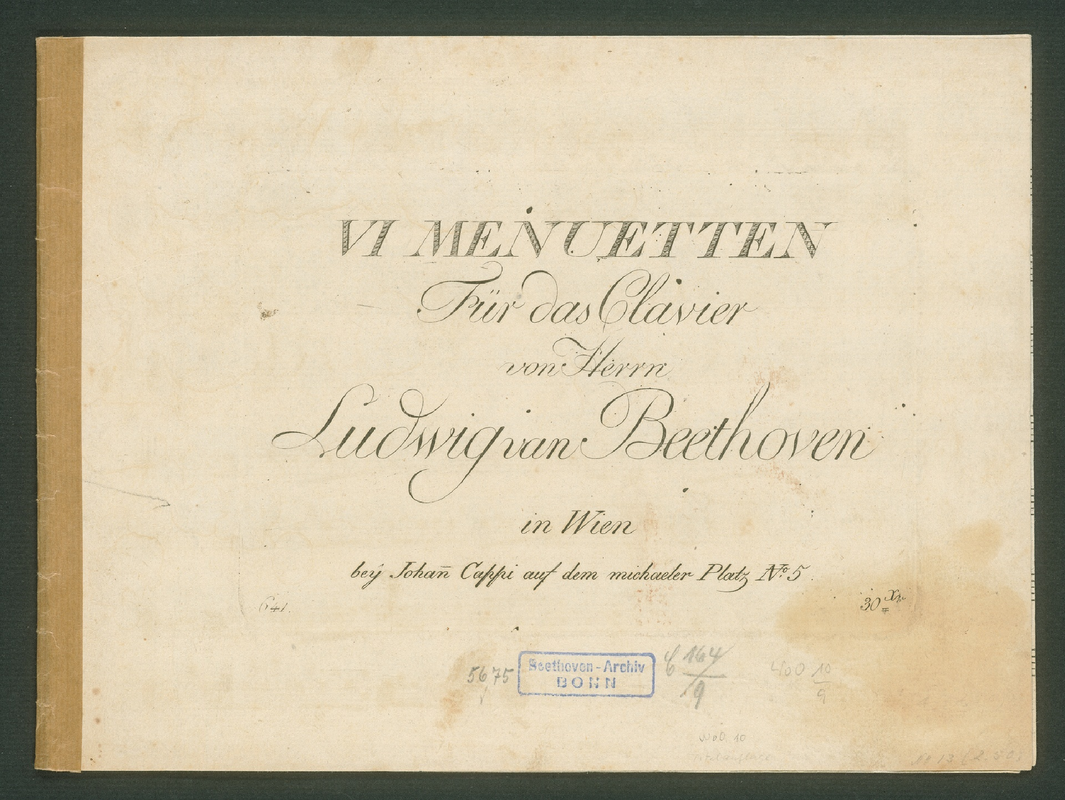 VI MENUETTEN
Für das Clavier
von Herrn
Ludwig van Beethoven
in Wien
beÿ Johan̄ Cappi auf dem michaeler Platz No. 5.
641.
30 Xr
5675
Beethoven-Archiv
BONN
C 164/9
WoO 10